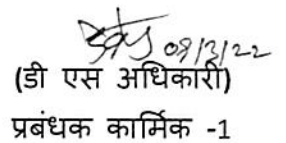 08/3/22
(डी एस अधिकारी)
प्रबंधक कार्मिक -1